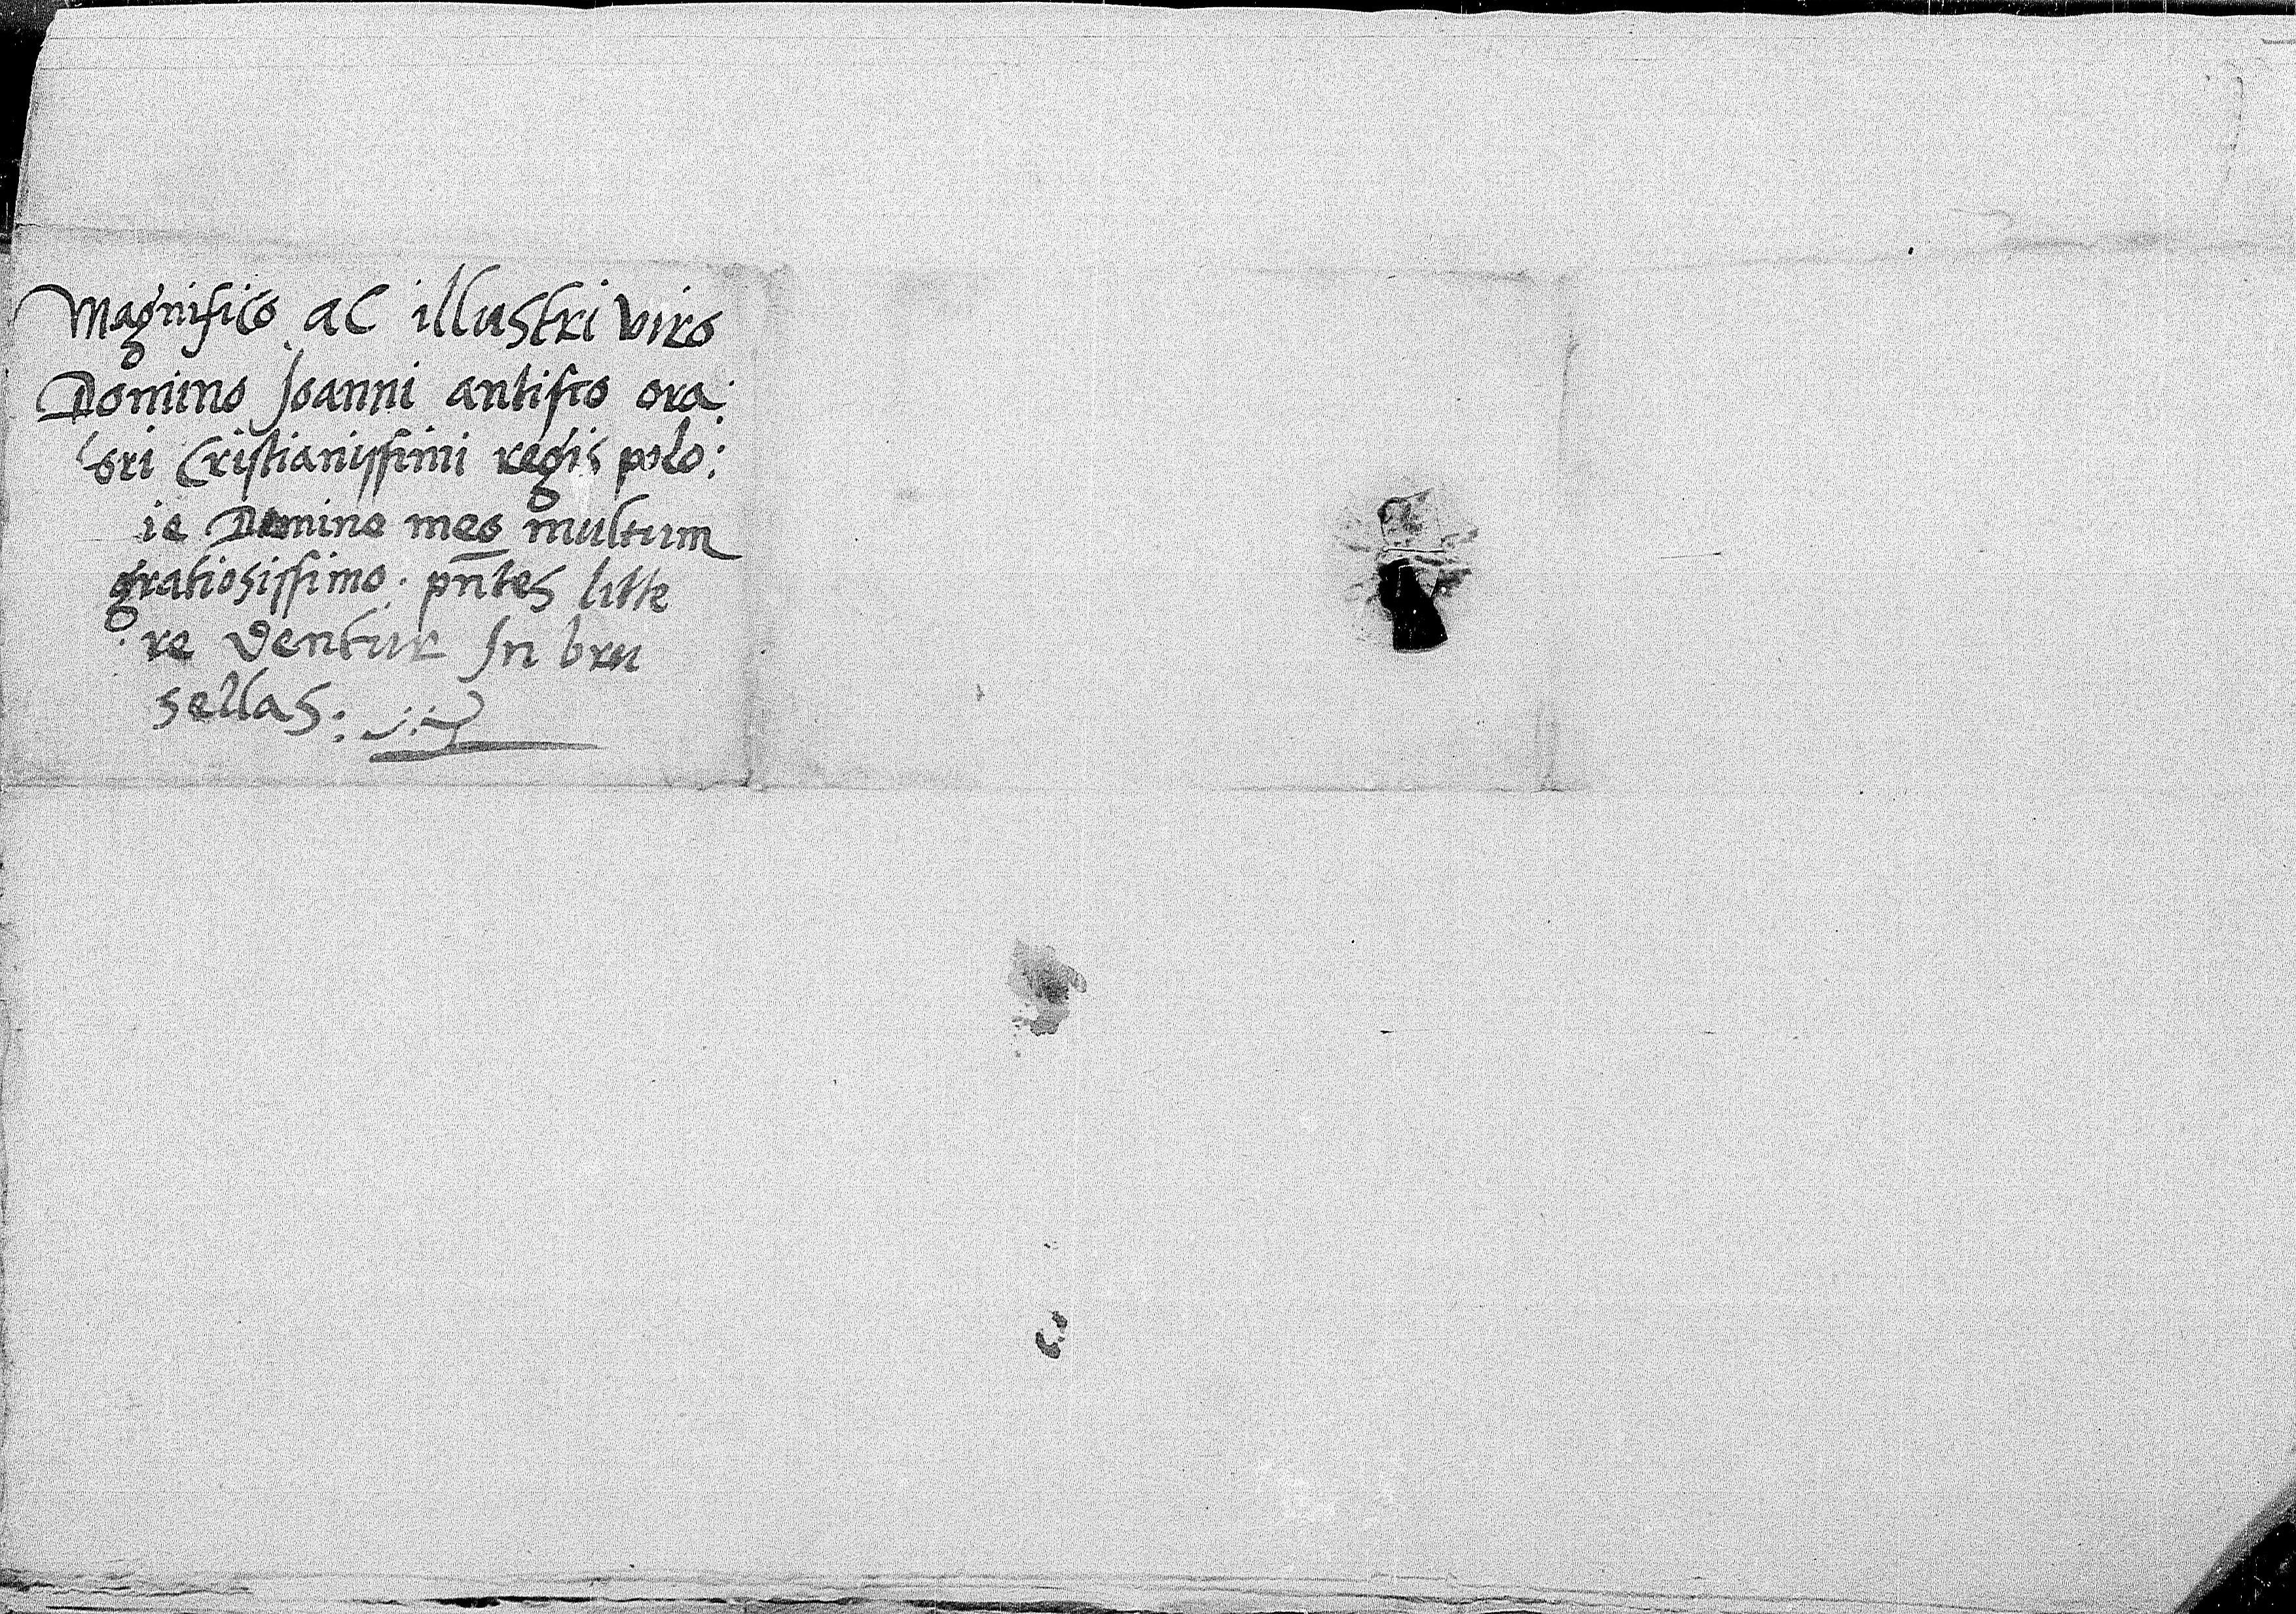 Magnifico ac illustri viro
Domino Joanni antisco ora:
tori Cristianissimi regis polo:
ie Domino meo multum
gratiosissimo. pn̄tes litte
re dentur In bru
sellas: